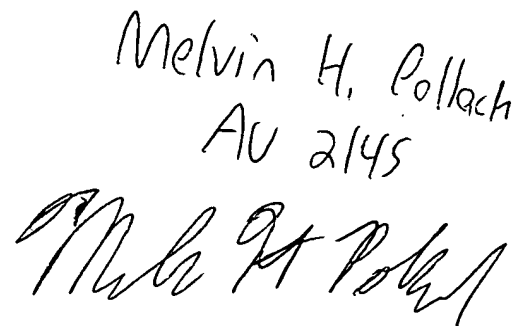 Melvin H. Pollach
AU 2145
Melvin H Pollach